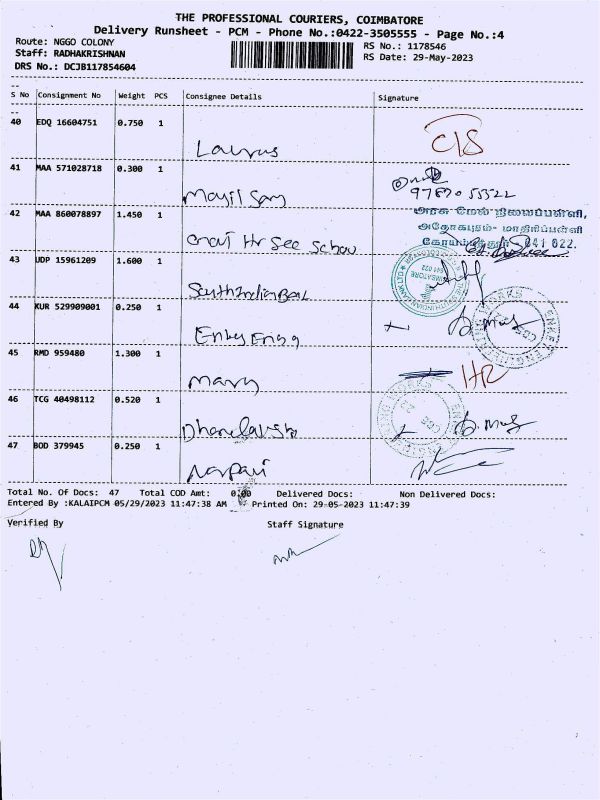 THE PROFESSIONAL COURIERS, COIMBATORE
Delivery Runsheet - PCM - Phone No.:0422-3505555 - Page No.:4
Route: NGGO COLONY
Staff: RADHAKRISHNAN
DRS No.: DCJB117854604
RS No.: 1178546
RS Date: 29-May-2023
S No Consignment No Weight PCS Consignee Details Signature
40 EDQ 16604751 0.750 1
Laurus
41 MAA 571028718 0.300 1
Mayil Samy
97870 55322
42 MAA 860078897 1.450 1
Hr Sec School
அரசு மேல் நிலைப்பள்ளி,
அசோகபுரம்- மாதிரிப்பள்ளி
கோயம்புத்தூர் 641 022.
43 UDP 15961209 1.600 1
South Indian Bank
44 KUR 529909001 0.250 1
Enkey Engg
45 RMD 959480 1.300 1
Mary
HR
46 TCG 40498112 0.520 1
47 BOD 379945 0.250 1
Total No. Of Docs: 47 Total COD Amt: 0.00 Delivered Docs: Non Delivered Docs:
Entered By :KALAIPCM 05/29/2023 11:47:38 AM Printed On: 29-05-2023 11:47:39
Verified By Staff Signature